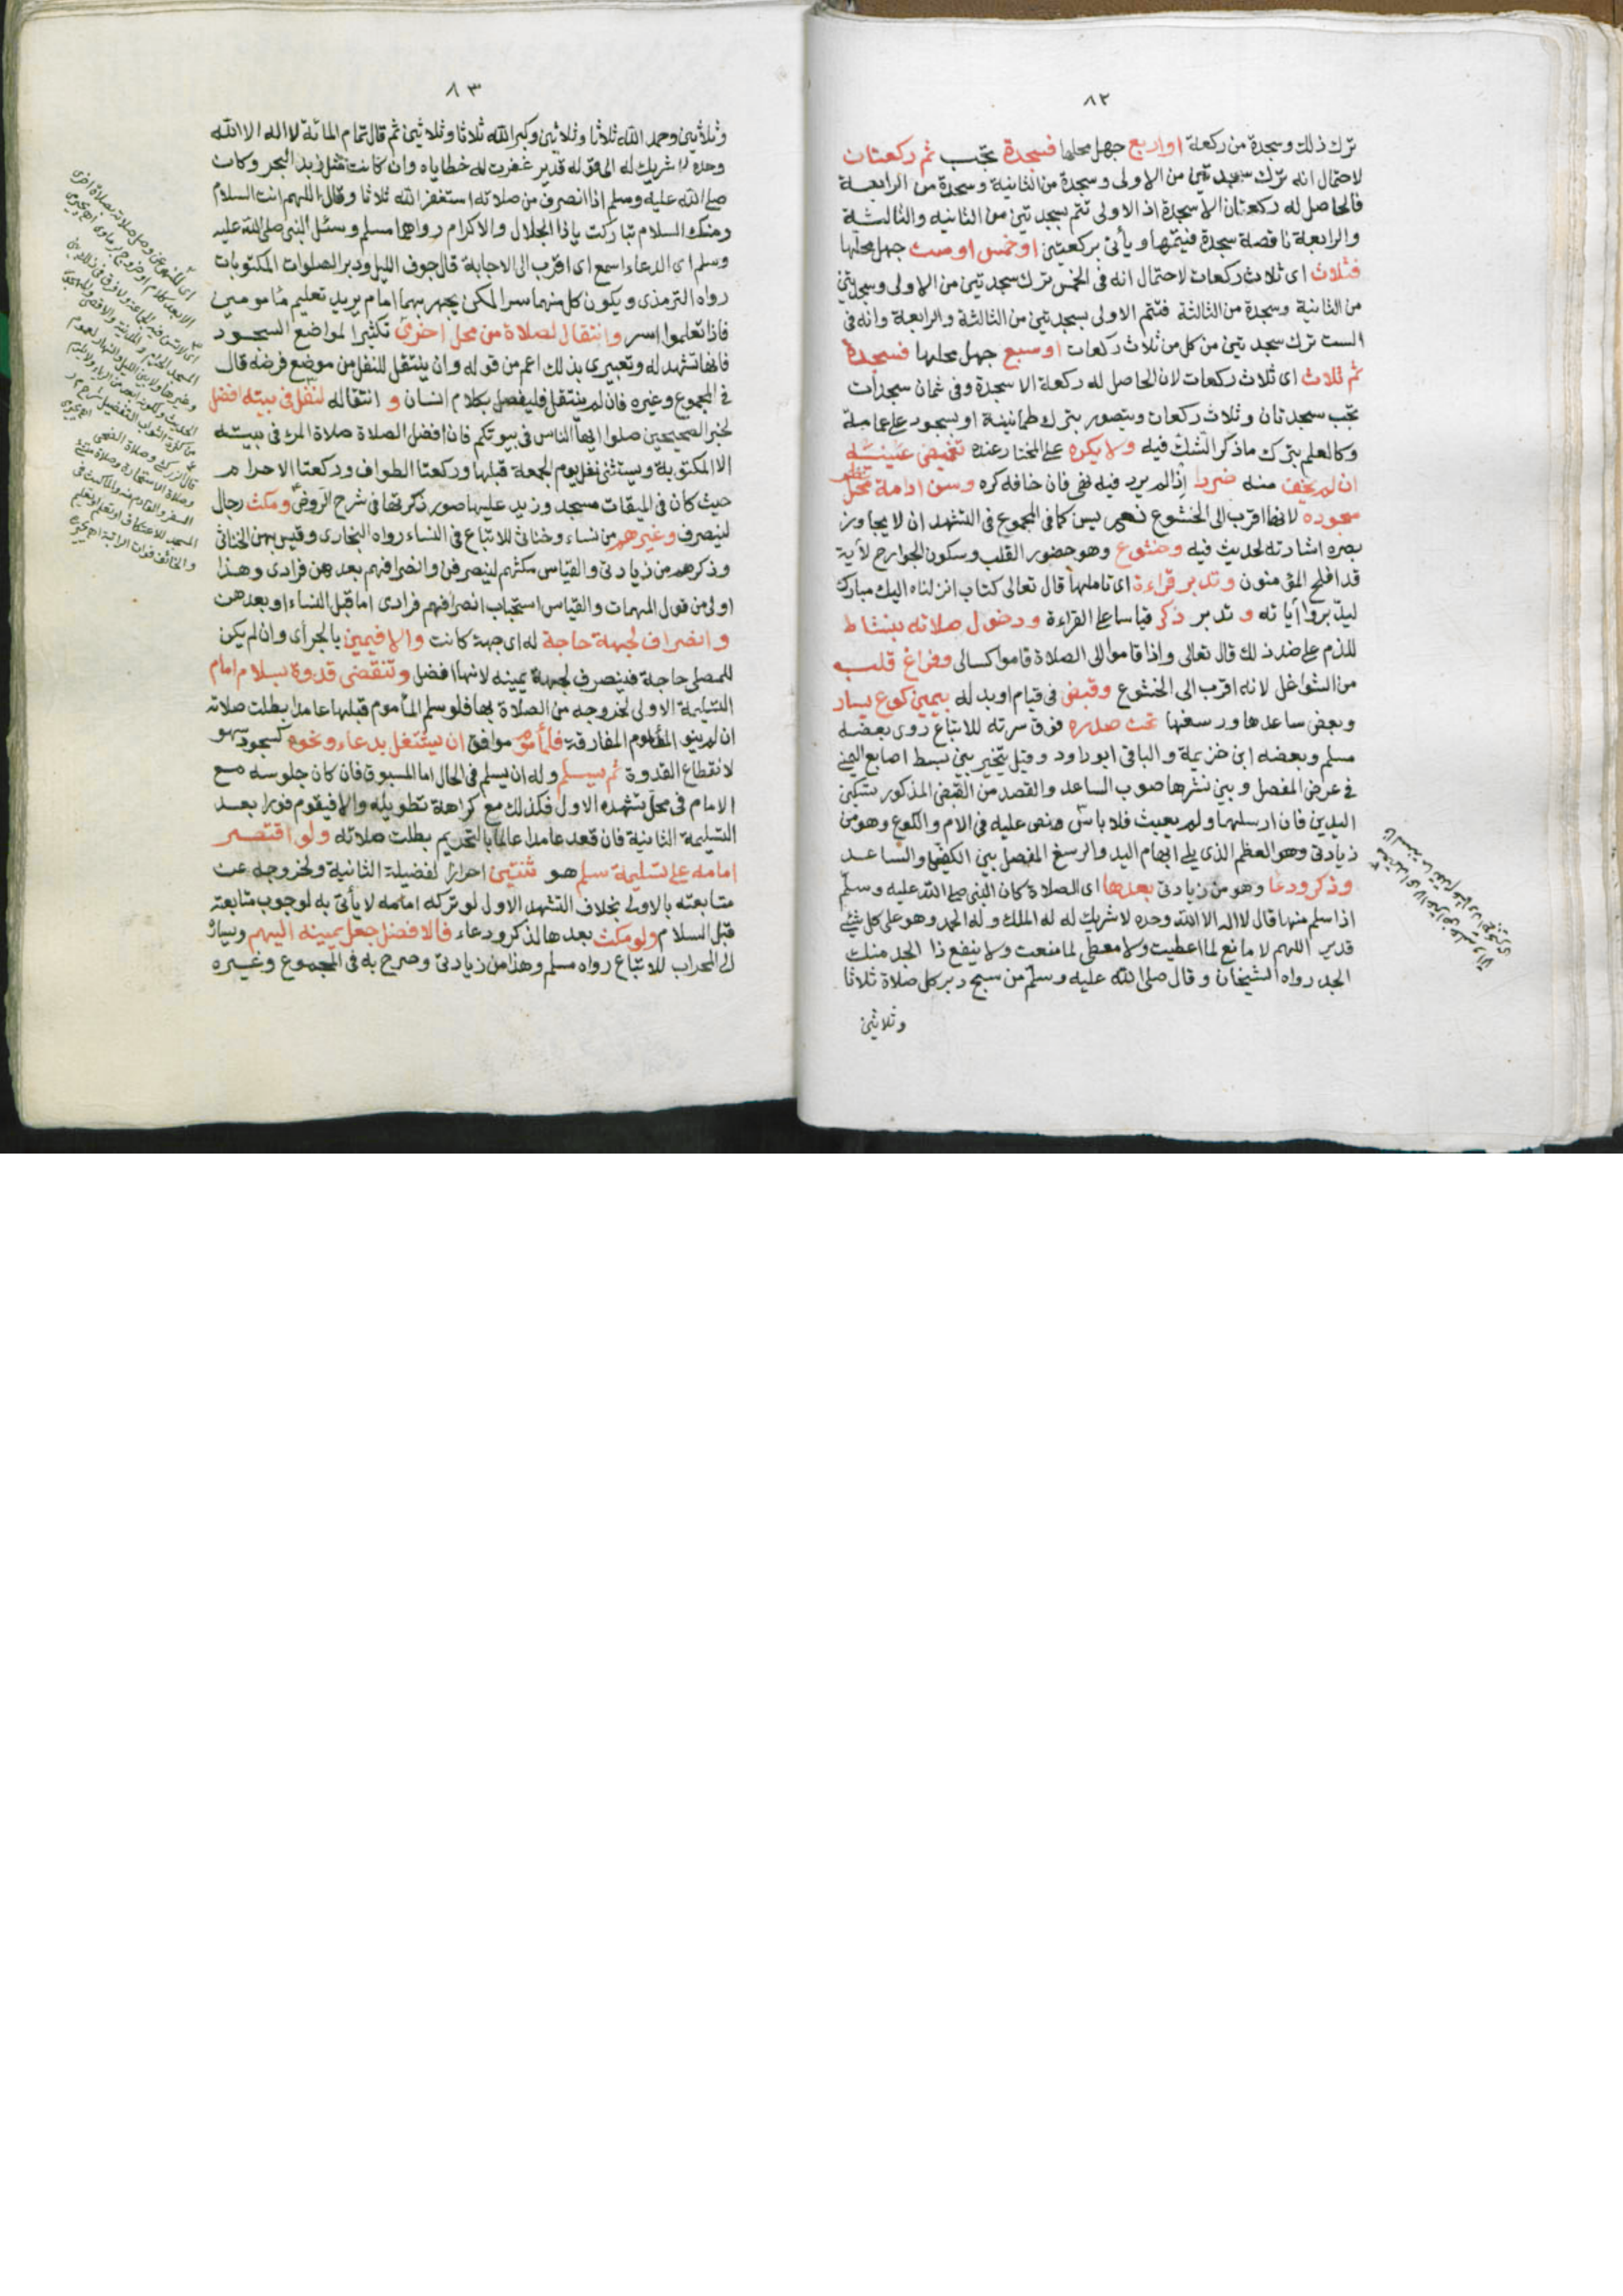 ٨٢
ترك ذلك وسجدة من ركعة او اربع جهل محلها فسجدة تجب ثم ركعتان
لاحتمال انه ترك سجدتين من الاولى وسجدة من الثانية وسجدة من الرابعة
فالحاصل له ركعتان الا سجدة اذ الاولى تتم بسجدتين من الثانيه والثالثة
والرابعة ناقصة سجدة فيتمها ويأتى بركعتين او خمس او ست جهل محلها
فثلاث اى ثلاث ركعات لاحتمال انه فى الخمس ترك سجدتين من الاولى وسجدتين
من الثانية وسجدة من الثالثة فتتم الاولى بسجدتين من الثالثة والرابعة وانه فى
الست ترك سجدتين من كل من ثلاث ركعات او سبع جهل محلها فسجدة
ثم ثلاث اى ثلاث ركعات لان الحاصل له ركعة الا سجدة وفى ثمان سجدات
تجب سجدتان وثلاث ركعات ويتصور بترك طمانينة او بسجود على عمامة
وكالعلم بترك ما ذكر الشك فيه ولا يكره على المختار عنده تغميض عينيه
ان لم يخف منه ضررا اذ لم يرد فيه نهى فان خافه كره وسن ادامة نظر محل
سجوده لانها اقرب الى الخشوع نعم يسن كما فى المجموع فى التشهد ان لا يجاوز
بصره اشارته لحديث فيه وخشوع وهو حضور القلب وسكون الجوارح لآية
قد افلح المؤمنون وتدبر قراءة اى تاملها قال تعالى كتاب انزلناه اليك مبارك
ليدبروا آياته و تدبر ذكر قياسا على القراءة ودخول صلاته بنشاط
للذم على ضد ذلك قال تعالى واذا قاموا الى الصلاة قاموا كسالى وفراغ قلب
من الشواغل لانه اقرب الى الخشوع وقبض فى قيام او بدله بيمين كوع يسار
وبعض ساعدها ورسغها تحت صدره فوق سرته للاتباع روى بعضه
مسلم وبعضه ابن خزيمة والباقى ابو داود وقيل يتخير بين بسط اصابع اليمنى
فى عرض المفصل وبين نشرها صوب الساعد والقصد من القبض المذكور تسكين
اليدين فان ارسلهما ولم يعبث فلا باس ونص عليه فى الام والكوع وهو من
زيادتى وهو العظم الذى يلى ابهام اليد والرسغ المفصل بين الكف والساعد
وذكر ودعا وهو من زيادتى بعدها اى الصلاة كان النبى صلى الله عليه وسلم
اذا سلم منها قال لا اله الا الله وحده لا شريك له له الملك وله الحمد وهو على كل شئ
قدير اللهم لا مانع لما اعطيت ولا معطى لما منعت ولا ينفع ذا الجد منك
الجد رواه الشيخان وقال صلى الله عليه وسلم من سبح دبر كل صلاة ثلاثا
وثلاثين
٨٣
وثلاثين وحمد الله ثلاثا وثلاثين وكبر الله ثلاثا وثلاثين ثم قال تمام المائة لا اله الا الله
وحده لا شريك له الى قوله قدير غفرت له خطاياه وان كانت مثل زبد البحر وكان
صلى الله عليه وسلم اذا انصرف من صلاته استغفر الله ثلاثا وقال اللهم انت السلام
ومنك السلام تباركت ياذا الجلال والاكرام رواهما مسلم وسئل النبى صلى الله عليه
وسلم اى الدعاء اسمع اى اقرب الى الاجابة قال جوف الليل ودبر الصلوات المكتوبات
رواه الترمذى ويكون كل منهما سرا لكن يجهر بهما امام يريد تعليم مأمومين
فاذا تعلموا اسر وانتقال لصلاة من محل اخرى تكثيرا لمواضع السجود
فانها تشهد له وتعبيرى بذلك اعم من قوله وان ينتقل للنفل من موضع فرضه قال
فى المجموع وغيره فان لم ينتقل فليفصل بكلام انسان و انتقاله لنفل فى بيته افضل
لخبر الصحيحين صلوا ايها الناس فى بيوتكم فان افضل الصلاة صلاة المرء فى بيته
الا المكتوبة ويستثنى نفل يوم الجمعة قبلها وركعتا الطواف وركعتا الاحرام
حيث كان فى الميقات مسجد وزيد عليها صور ذكرتها فى شرح الروض ومكث رجال
لينصرف وغيرهم من نساء وخناثى للاتباع فى النساء رواه البخارى وقيس بهن الخناثى
وذكرهم من زيادتى والقياس مكثهم لينصرفن وانصرافهم بعدهن فرادى وهذا
اولى من قول المهمات والقياس استحباب انصرافهم فرادى اما قبل النساء او بعدهن
وانصراف لجهة حاجة له اى جهة كانت والا فيمين بالجر أى وان لم يكن
للمصلى حاجة فينصرف لجهة يمينه لانها افضل وتنقضى قدوة بسلام امام
التسليمة الاولى لخروجه من الصلاة بها فلو سلم المأموم قبلها عامدا بطلت صلاته
ان لم ينو المأموم المفارقة فلمأموم موافق ان يشتغل بدعاء ونحوه كسجود سهو
لانقطاع القدوة ثم يسلم وله ان يسلم فى الحال اما المسبوق فان كان جلوسه مع
الامام فى محل تشهده الاول فكذلك مع كراهة تطويله والا فيقوم فورا بعد
التسليمة الثانية فان قعد عامدا عالما بالتحريم بطلت صلاته ولو اقتصر
امامه على تسليمة سلم هو ثنتين احرازا لفضيلة الثانية ولخروجه عن
متابعته بالاولى بخلاف التشهد الاول لو تركه امامه لا يأتى به لوجوب متابعته
قبل السلام ولو مكث بعدها لذكر ودعاء فالافضل جعل يمينه اليهم ويساره
الى المحراب للاتباع رواه مسلم وهذا من زيادتى وصرح به فى المجموع وغيره